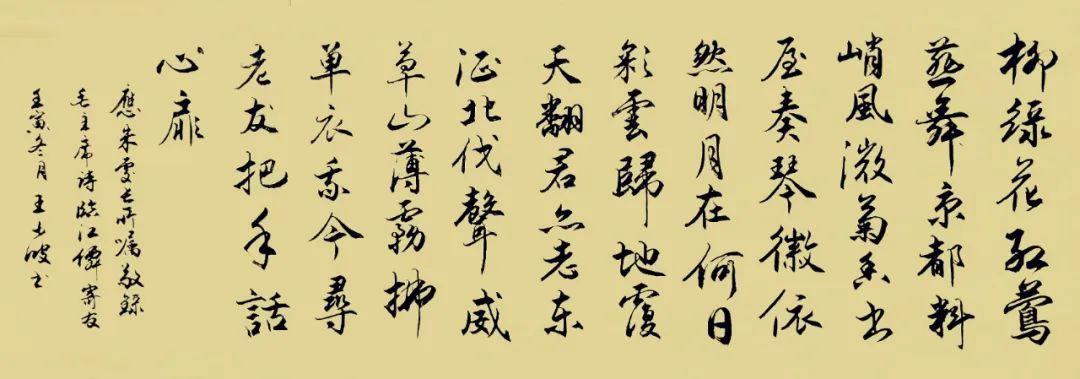 柳綠花紅鶯
燕舞京都料
峭風微菊香出
屋奏琴徽依
然明月在何日
彩雲歸地覆
天翻君亦老東
征北伐聲威
草山薄霧拂
单衣我今尋
老友把手話
心扉
應朱 長所囑敬録
毛主席詩臨江僊寄友
壬寅冬月 王士波书